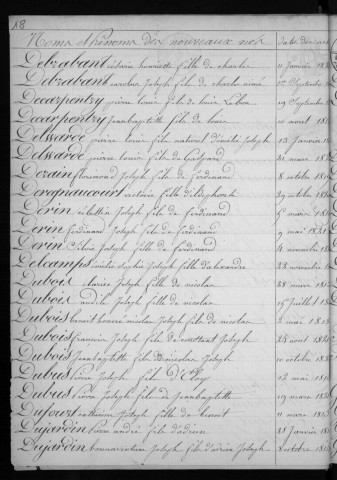 18
Noms et prénoms des nouveaux nés
Debrabant victoire henriette fille de charles 11 Janvier
Debrabant aurelien Joseph fils de charles aimé Septembre
Decarpentry pierre louis fils de louis 19 Septembre
Decarpentry Jeanbaptiste fils de louis 10 avril
Delwarde pierre louis fils naturel Joseph 13 Janvier
Delwarde pierre louis fils de Gaspard 31 mars
Derain florimond Joseph fils de ferdinand 8 octobre
Deregnaucourt victoire fille d'Elephonse 29 octobre
Derin celestin Joseph fils de ferdinand 5 mars
Derin ferdinand Joseph fils de ferdinand 9 mai 1821
Derin Celine Joseph fille de ferdinand novembre
Delcamps sophie Joseph fille d'alexandre 22 novembre
Dubois clarice Joseph fille de nicolas 28 mars
Dubois Joseph fille de nicolas 15 Juillet
Dubois benoit honoré nicolas Joseph fils de nicolas mai
Dubois francois Joseph fils de constant Joseph 25 aout
Dubois Jeanbaptiste fils de nicolas Joseph 10 octobre
Dubus pierre Joseph fils d'Eloy 12 mai
Dubus pierre Joseph fils de Jeanbaptiste 19 mars
Dufourt catherine Joseph fille de benoit 11 mars
Dujardin pierre andré fils d'adrien 25 Janvier
Dujardin bonnaventure Joseph fils d'adrien Joseph octobre